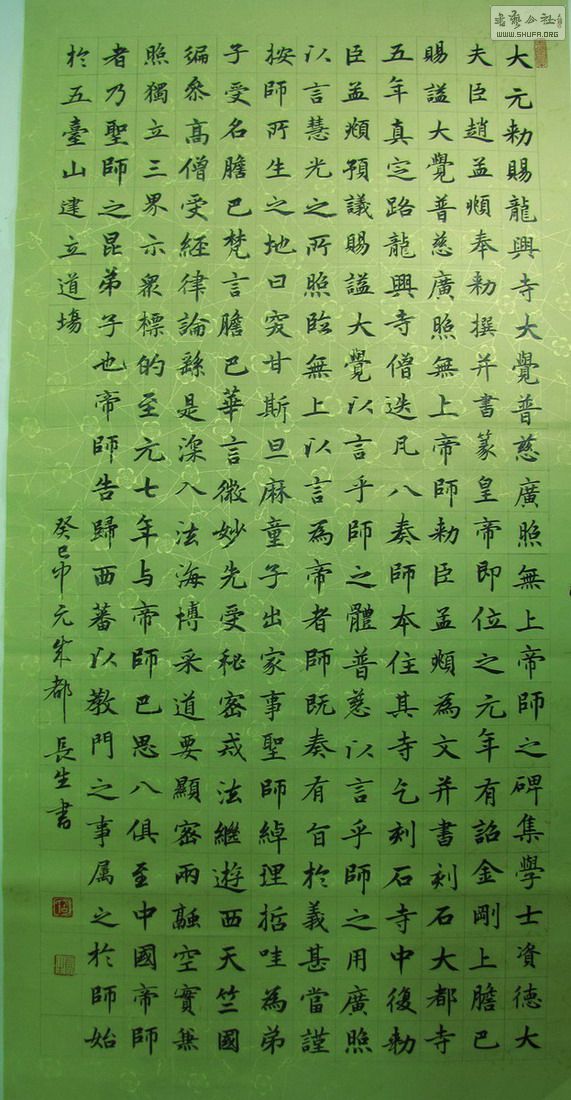 大元勑賜龍興寺大覺普慈廣照無上帝師之碑集學士資德大
夫臣趙孟頫奉勑撰并書篆皇帝即位之元年有詔金剛上膽巴
賜謚大覺普慈廣照無上帝師勑臣孟頫為文并書刻石大都寺
五年真定路龍興寺僧迭凡八奏師本住其寺乞刻石寺中復勑
臣孟頫預議賜謚大覺以言乎師之體普慈以言乎師之用廣照
以言慧光之所照臨無上以言為帝者師既奏有旨於義甚當謹
按師所生之地曰突甘斯旦麻童子出家事聖師綽理哲哇為弟
子受名膽巴梵言膽巴華言微妙先受秘密戒法繼遊西天竺國
徧參高僧受經律論繇是深入法海博采道要顯密兩融空實兼
照獨立三界示衆標的至元七年与帝師巴思八俱至中國帝師
者乃聖師之昆弟子也帝師告歸西蕃以教門之事属之於師始
於五臺山建立道塲
癸巳中元都長生書
書藝公社
WWW.SHUFA.ORG